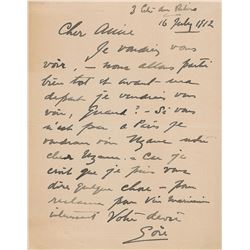 16 July 1912
Cher Amie
Je voudrais vous
voir, – nous allons partir
bien tot et avant – ma
depart je voudrais vous
voir, Quand? – Si vous
n'est pas a Paris je
voudrais voir Uzanne notre
cher Uzanne. – Car je
croit que je puis vous
dire quelque chose – pour
reclame pour Vin Mariani
Votre devoué